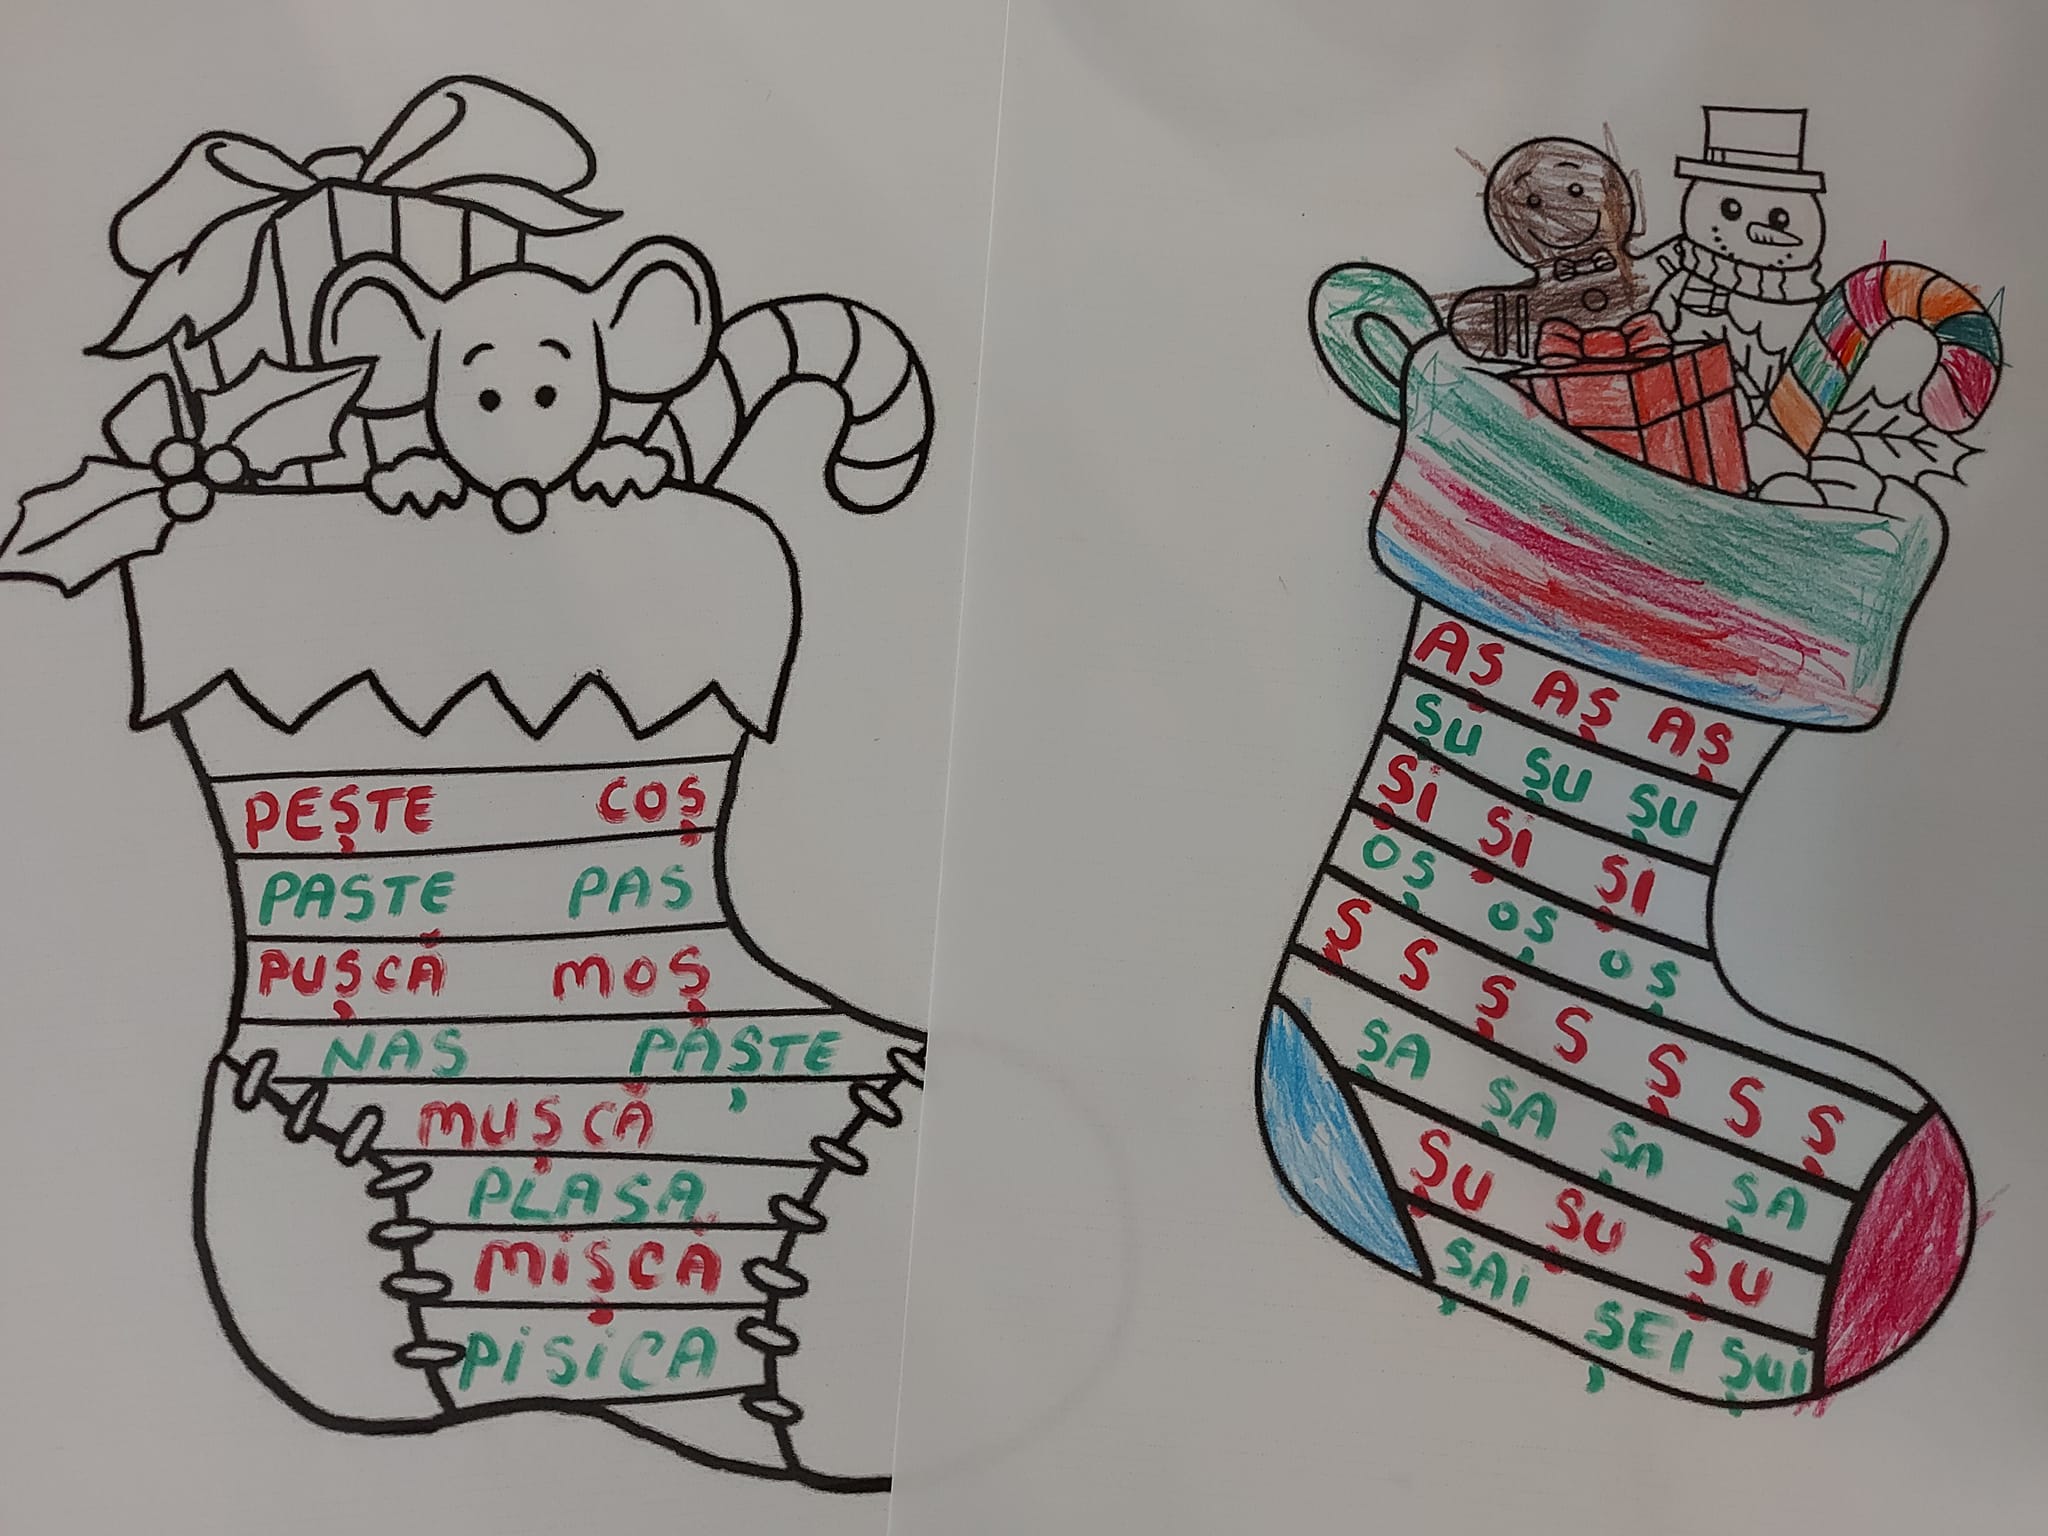 PEȘTE COȘ
PASTE PAS
PUȘCĂ MOȘ
NAS PAȘTE
MUȘCĂ
PLASA
MiȘCĂ
PiSiCA
AȘ AȘ AȘ
ȘU ȘU ȘU
Și Și ȘI
OȘ OȘ OȘ
Ș Ș Ș Ș Ș Ș Ș
ȘA ȘA ȘA ȘA
ȘU ȘU ȘU
ȘAi ȘEI ȘUi